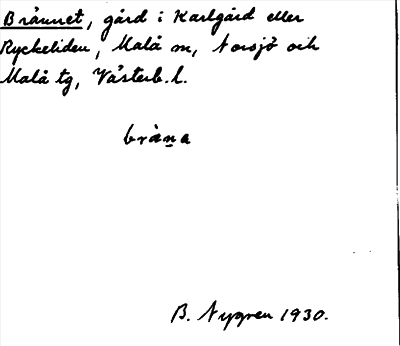 Brännet, gård i Karlgård eller
Ryckeliden, Malå sn, Norsjö och
Malå tg, Västerb. l.
bràna
B. Nygren 1930.